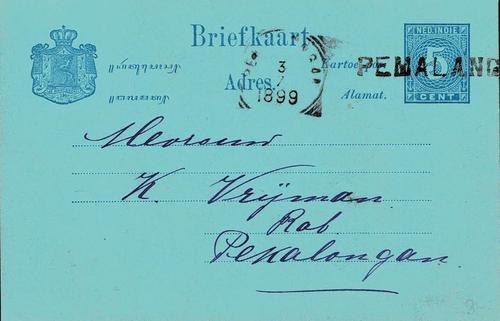 Briefkaart
NED. INDIE
Kartoe
PEMALANG
5
3
1899
Adres.
Alamat.
CENT
K. Vrijman
Rob
Pekalongan